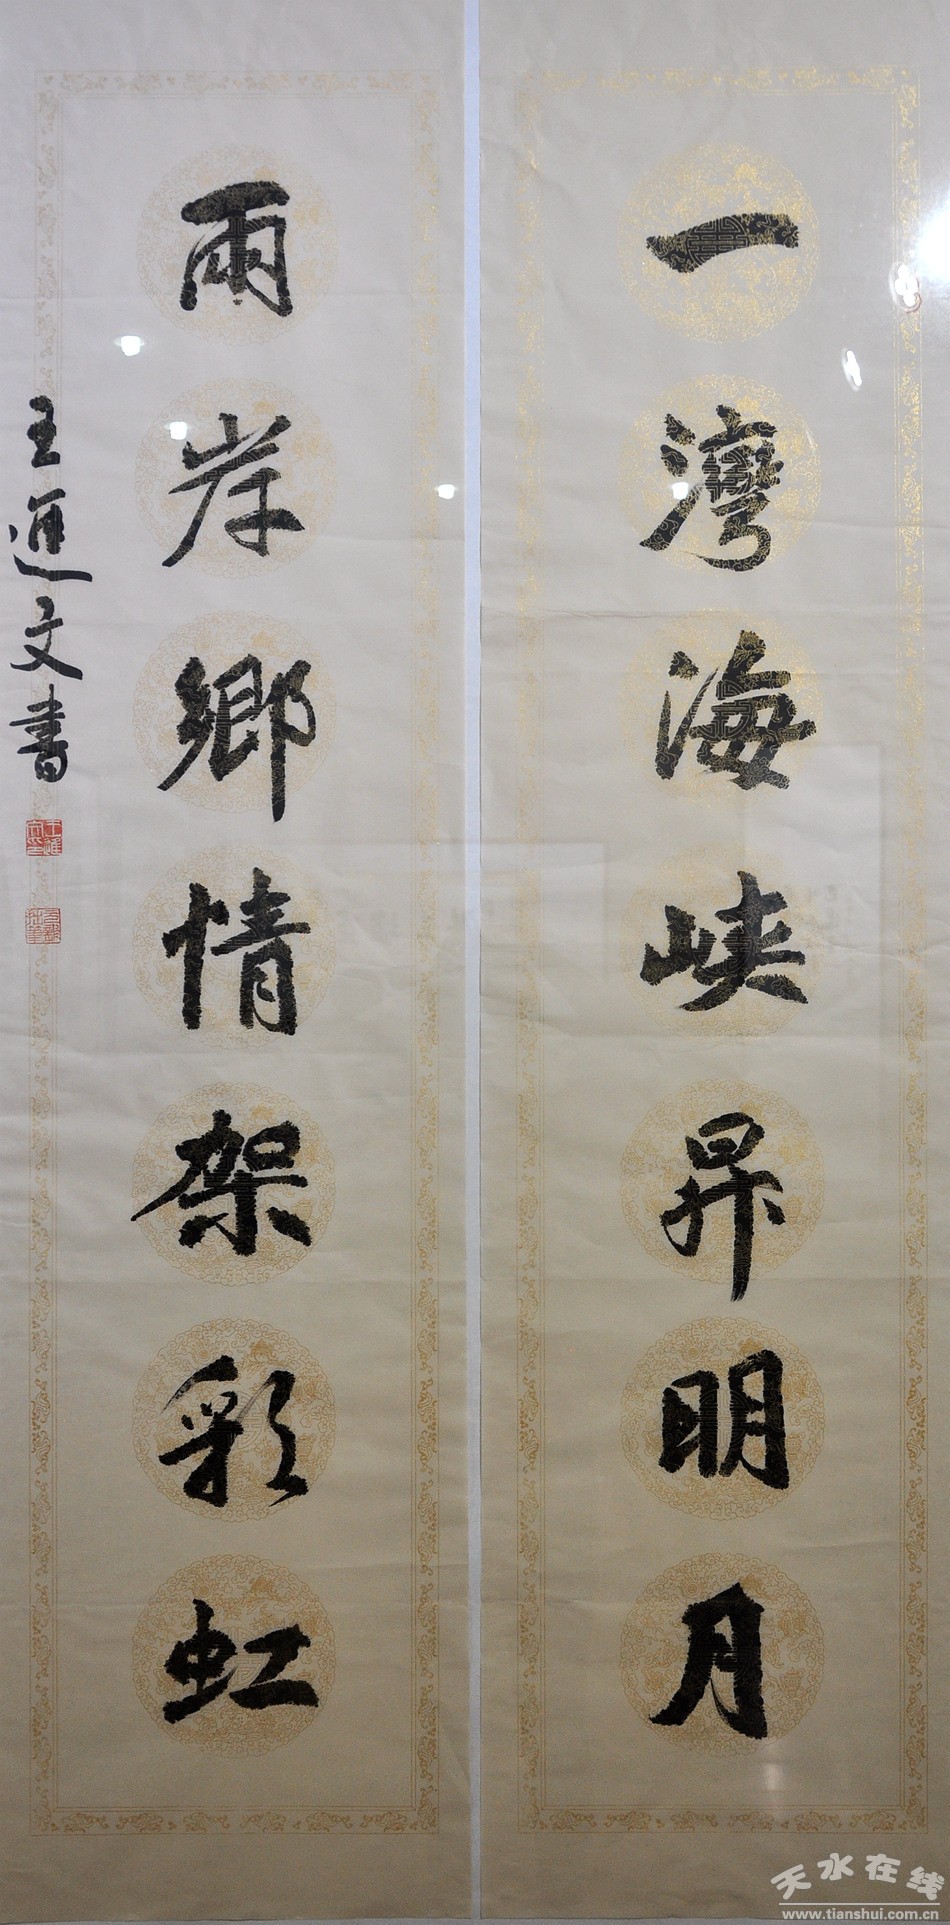 一灣海峽昇明月
兩岸鄉情架彩虹
王進文書
天水在线
www.tianshui.com.cn